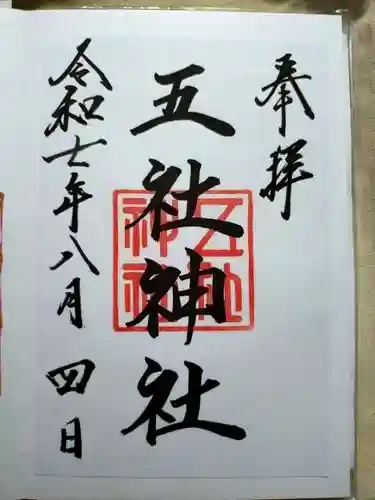 奉拝
五社神社
五社
神社
令和七年八月四日